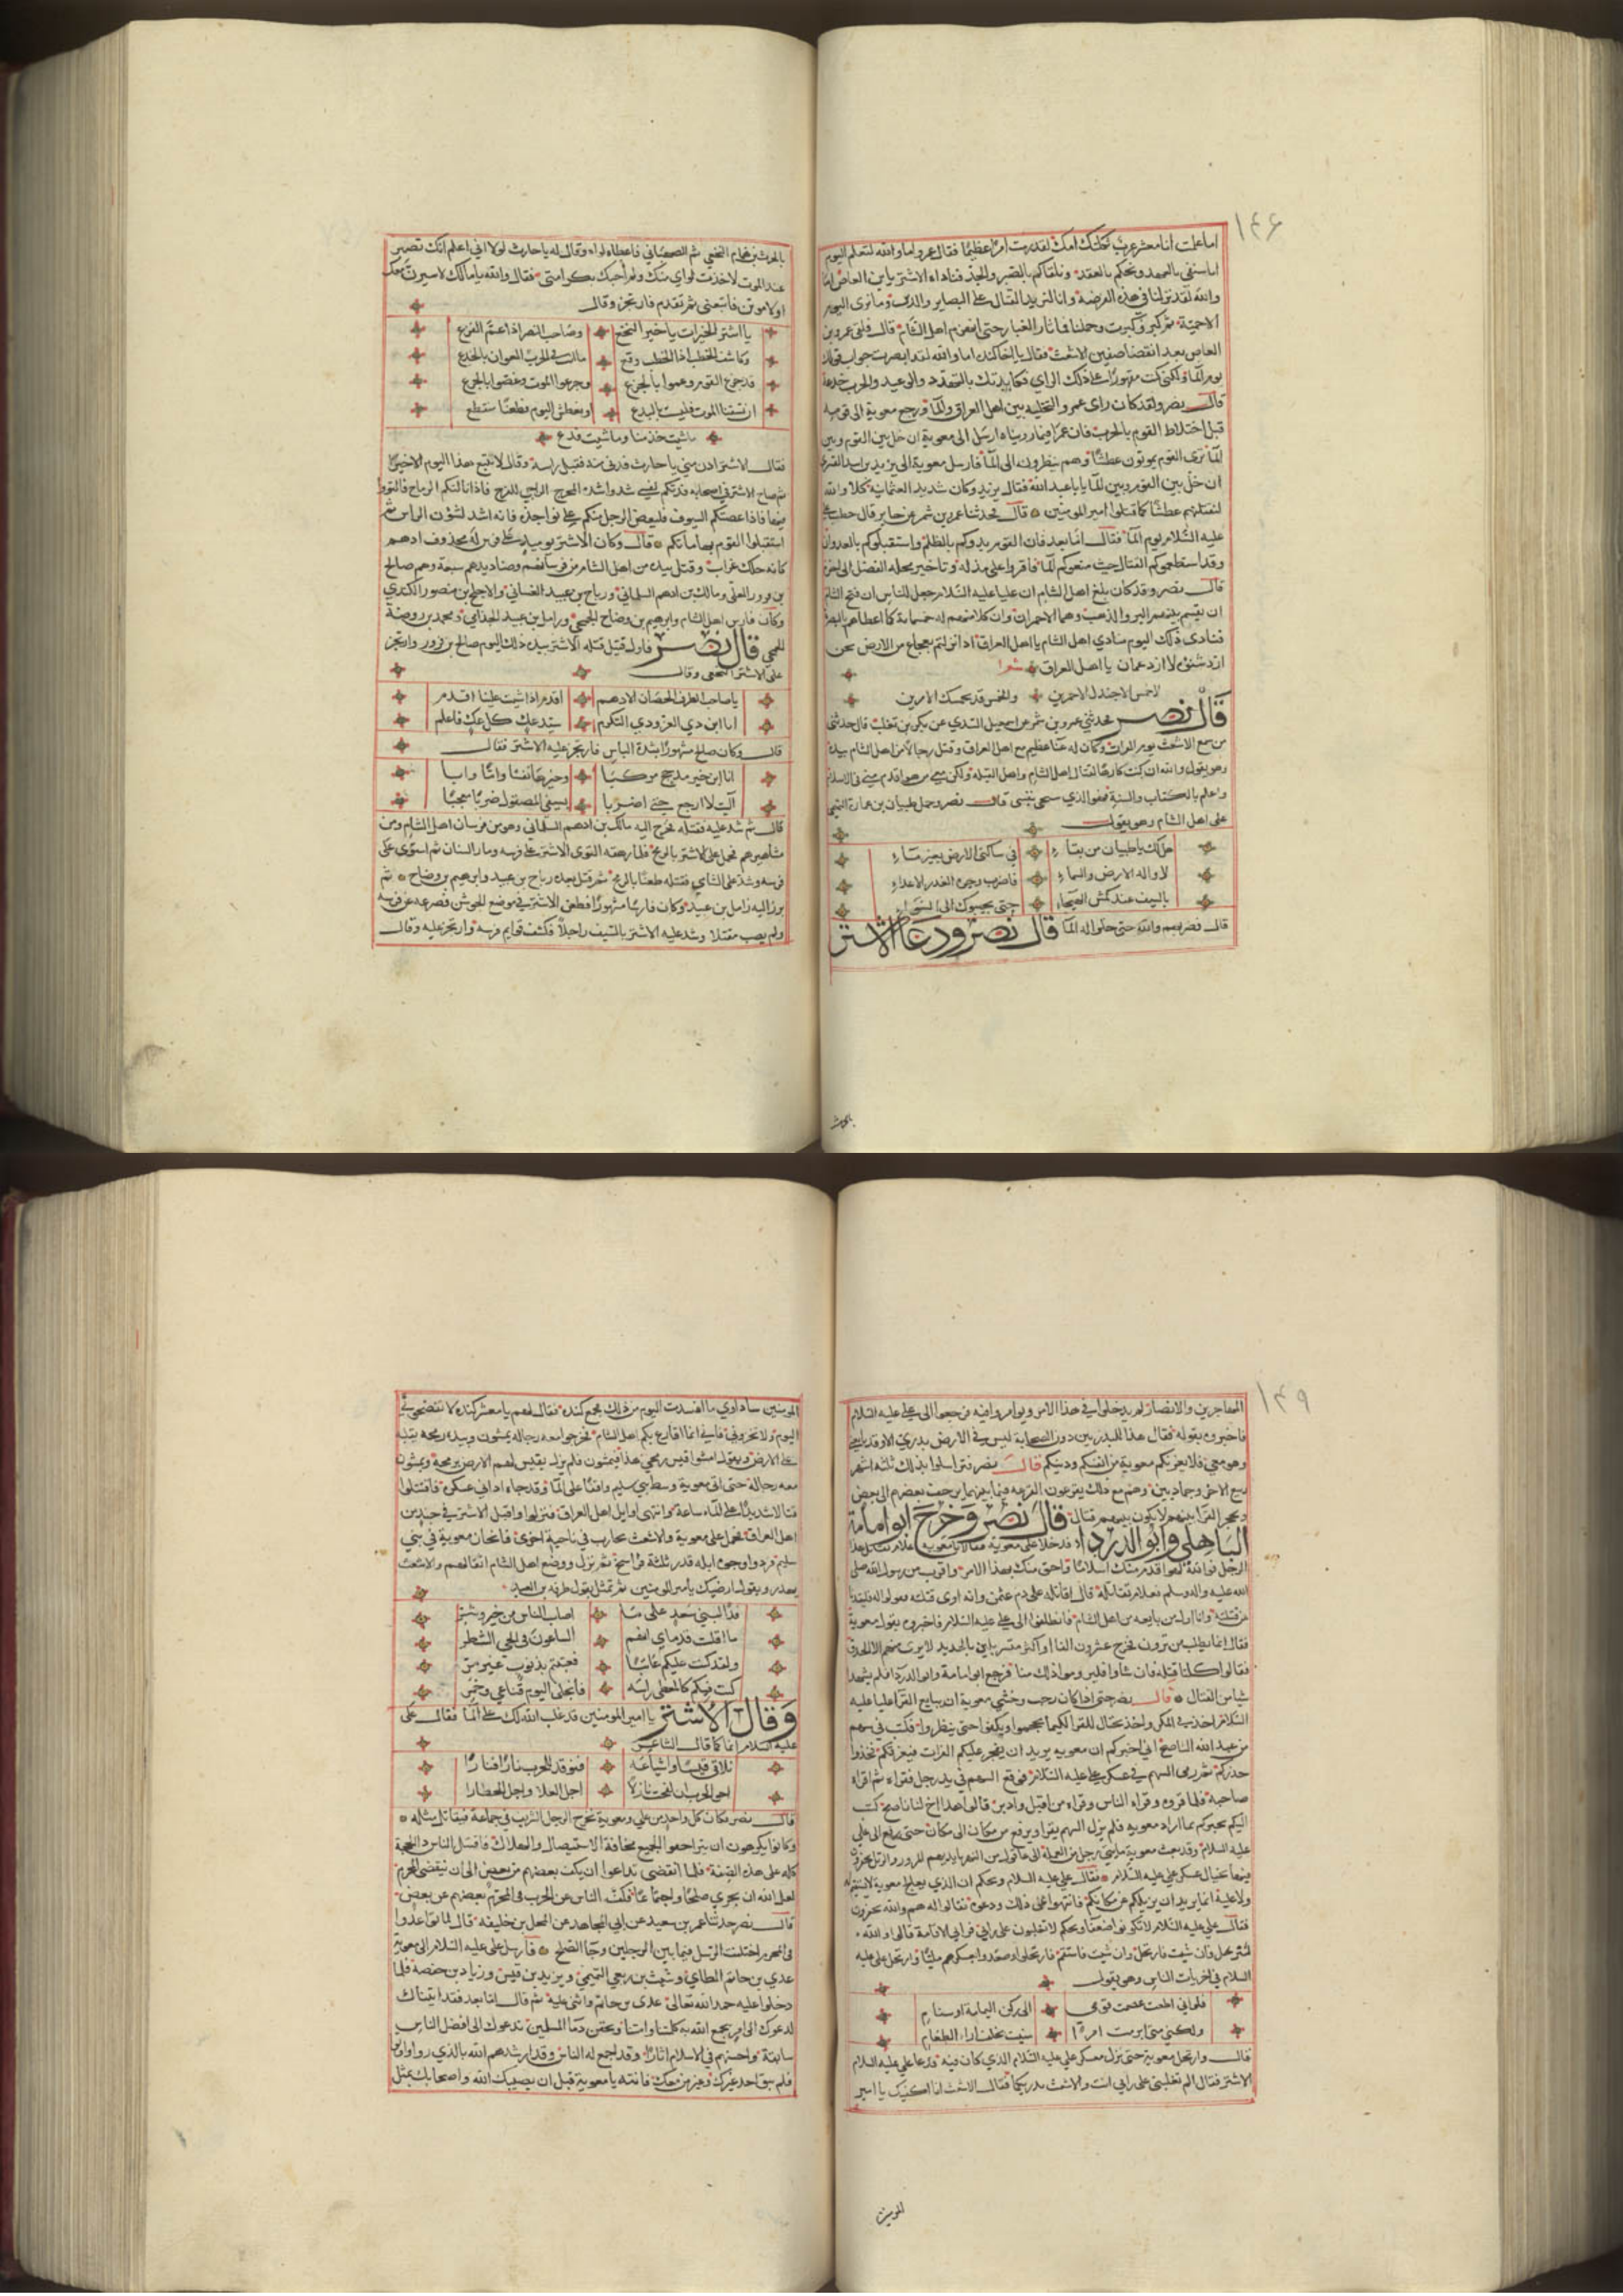 ١٤٦
اما علمت انا معشر عرب ثكلتك امك لقد رمت امرا عظيما فقال عمرو اما والله لتعلم اليوم
انا سنفي بالعهد ونحكم بالعقد ونلقاكم بالصبر والجد فناداه الاشتر يابن العاص اما
والله لقد نزلنا في هذه الفرضة وانا لنريد القتال على البصاير والدين وما نرى اليوم
الا حمية ثم كبر وكبرت وحملنا فما ثار الغبار حتى انهزم اهل الشام قال فلقي عمرو بن
العاص بعد انقضا صفين الاشعث فقال يا اخا كنده اما والله لقد ابصرت صواب قولك
يوم الما ولكني كنت مقهورا على ذلك الراي فكايدتك بالتهدد والوعيد والحرب خدعة
قال نصر ولقد كان راى عمرو التخليه بين اهل العراق والما ورجع معوية الى قوله
قبل اختلاط القوم بالحرب فان عمرا فيما روينا ارسل الى معوية ان خل بين القوم وبين
الما ترى القوم يموتون عطشا وهم ينظرون الى الما فارسل معوية الى يزيد بن اسد القسري
ان خل بين القوم وبين الما يابا عبد الله فقال يزيد وكان شديد العثمانية كلا والله
لنقتلنهم عطشا كما قتلوا امير المومنين قال فحدثنا عمرو بن شمر عن جابر قال خطب على
عليه السلام يوم الما فقال اما بعد فان القوم بدوكم بالظلم واستقبلوكم بالعدوان
وقد استطعموكم القتال حيث منعوكم الما فاقروا على مذله وتاخير محله الفصل الى اخره
قال نصر وقد كان بلغ اهل الشام ان عليا عليه السلام جعل للناس ان فتح الشام
ان يقسم بينهم البر والذهب وهما الاحمران وان كلا منهم له خمسماية كما اعطاهم بالبصرة
فنادى ذلك اليوم منادي اهل الشام يا اهل العراق اذا نزلتم بعجاج من الارض نحن
ازد شنؤه لا ازد عمان يا اهل العراق شعرا
لا خمس الا جندل الاحمرين والخمس قد يحمسك الامرين
قال نصر فحدثني عمرو بن شمر عن اسمعيل السدي عن بكر بن تغلب قال حدثني
من سمع الاشعث يوم الفرات وكان له غنا عظيم مع اهل العراق وقتل رجالا من اهل الشام بيده
وهو يقول والله ان كنت كارها لقتال اهل الشام واهل القبله ولكن معي من هو اقدم مني في الاسلام
واعلم بالكتاب والسنة فهو الذي سمى بنفسى قال نصر وحمل ظبيان بن عمارة التميمي
على اهل الشام وهو يقول
هل لك يا ظبيان من بقاء في ساكني الارض بغير ماء
لا واله الارض والسماء فاضرب وجوه الغدر الاعداء
بالسيف عند حمس الهيجاء حتى يجيبوك الى السواء
قال فضربهم والله حتى خلوا له الما قال نصر ودعا الاشتر
بالحرث
بالحرث بن همام النخعي ثم الصهباني فاعطاه لواه وقال له يا حارث لولا اني اعلم انك تصبر
عند الموت لاخذت لواي منك ولم احبك بكرامتي فقال والله يا مالك لاسرنك
او لاموتن فاتبعني ثم تقدم فارتجز وقال
يا اشتر الخيرات يا خير النخع وصاحب النصر اذا عم الفزع
وكاشف الخطب اذا الخطب وقع مالت في الحرب العوان بالجدع
قد جزع القوم وعموا بالجزع وجرعوا الموت وغصوا بالجرع
ان تسقنا الموت فليست بالبدع او نعطش اليوم فطعنا مقتطع
ماشيت خذ منا وماشيت فدع
فقال الاشتر ادن مني يا حارث فدنى منه فقبل راسه وقال لا يتبع هذا اليوم الا خيرا
ثم صاح الاشتر في اصحابه فدتكم نفسي شدوا شدة المحرج الراجي للفرج فاذا نالتكم الرماح فالتووا
فيها فاذا عضتكم السيوف فليعض الرجل منكم على نواجذه فانه اشد لشؤن الراس ثم
استقبلوا القوم بهاماتكم قال وكان الاشتر يوميذ على فرس له محذوف ادهم
كانه حلك غراب وقتل بيده من اهل الشام من فرسانهم وصناديدهم سبعة وهم صالح
بن فيروز العكي ومالك بن ادهم السلماني ورياح بن عبيد الغساني والاجلح بن منصور الكندي
وكان فارس اهل الشام وابرهيم بن وضاح الجمحي وزامل بن عبيد الجذامي ومحمد بن روضة
الجمحي قال نصر فاول قتيل قتله الاشتر بيده ذلك اليوم صالح بن فيروز وارتجز
على الاشتر النخعي وقال
يا صاحب الطرف الحصان الادهم اقدم اذا شيت علينا اقدم
انا ابن ذي العز وذي التكرم سيد عك كل عك فاعلم
قال وكان صالح مشهورا بشدة الباس فارتجز عليه الاشتر فقال
انا ابن خير مذحج مركبا وخيرها نفسا واما وابا
آليت لا ارجع حتى اضربا بسيفي المصقول ضربا معجبا
قال ثم شد عليه فقتله فخرج اليه مالك بن ادهم السلماني وهو من فرسان اهل الشام ومن
مشاهيرهم فحمل على الاشتر بالرمح فلما رهقه التوى الاشتر على فرسه ومار السنان ثم استوى على
فرسه وشد على الشامي فقتله طعنا بالرمح ثم قتل بعده رياح بن عبيد وابرهيم بن وضاح ثم
برز اليه زامل بن عبيد وكان فارسا مشهورا فطعن الاشتر في موضع الجوشن فصرعه عن فرسه
ولم يصب مقتلا وشد عليه الاشتر بالسيف راجلا فكشف قوايم فرسه وارتجز عليه وقال
١٤٩
المهاجرين والانصار لم يدخلوا في هذا الامر ويوامروا فيه فرجعوا الى علي عليه السلام
فاخبروه بقوله فقال هذا للبدريين دون الصحابة ليس في الارض بدري الا وقد بايعني
وهو معي فلا يغرنكم معوية من انفسكم ودينكم قال نصر فتراسلوا بذلك ثلثه اشهر
ربيع الاخر وجماديين وهم مع ذلك يفزعون الفزعه فيما بينهما يزحف بعضهم الى بعض
ويحجز القرا بينهم ولا يكون بينهم قتال قال نصر وخرج ابو امامة
الباهلي وابو الدرداء فدخلا على معوية فقالا يا معوية علام تقاتل هذا
الرجل فوالله لهو اقدم منك اسلاما واحق منك بهذا الامر واقرب من رسول الله صلى
الله عليه واله وسلم فعلام تقاتله قال اقاتله على دم عثمن وانه اوى قتلته فقولوا له فليقدنا
من قتلته وانا اول من بايعه من اهل الشام فانطلقوا الى علي عليه السلام فاخبروه بقول معوية
فقال انما يطلب من ترون فخرج عشرون الفا او اكثر متسربلين بالحديد لا يرى منهم الا الحدق
فقالوا كلنا قتله فان شاوا فليروموا ذلك منا فرجع ابو امامة وابو الدردا فلم يشهدا
شيا من القتال قال نصر حتى اذا كان رجب وخشي معوية ان يبايع القرا عليا عليه
السلام اخذ في المكر واخذ يحتال للقرا لكيما يحجموا ويكفوا حتى ينظروا فكتب في سهم
من عبد الله الناصح اني اخبركم ان معويه يريد ان يفجر عليكم الفرات فيغرقكم فخذوا
حذركم ثم رمى السهم في عسكر علي عليه السلام فوقع السهم في يد رجل فقراه ثم اقراه
صاحبه فلما قروه وقراه الناس وقراه من اقبل وادبر قالوا هذا اخ لنا ناصح كتب
اليكم يخبركم بما اراد معويه فلم يزل السهم يقرا ويرفع من مكان الى مكان حتى رفع الى علي
عليه السلام وقد بعث معوية مايتي رجل من العملة الى عاقول من النهر بايديهم المرور والزبل يحفرون
فيها بحيال عسكر علي عليه السلام فقال علي عليه السلام ويحكم ان الذي يعالج معوية لا يستقيم له
ولا عليه انما يريد ان يزيلكم عن مكانكم فانتهوا عن ذلك ودعوه فقالوا له هم والله يحفرون
فقال علي عليه السلام لا تكونوا ضعفا ويحكم لا تغلبون على رايي فرايي الاقامة قالوا والله
لنرتحلن فان شيت فارتحل وان شيت فاستقم فارتحلوا وصعدوا بعسكرهم مليا وارتحل علي عليه
السلام في اخريات الناس وهو يقول
فلو اني اطعت عصمت قومي الى ركن اليمامة او شنام
ولكني متى ابرمت امرا منيت بخلف اراء الطغام
قال وارتحل معوية حتى نزل معسكر علي عليه السلام الذي كان فيه فدعا علي عليه السلام
الاشتر فقال الم تغلبني على رايي انت والاشعث بدريكما فقال الاشعث انا اكفيك يا امير
المومنين
المومنين ساداوي ما افسدت اليوم من ذلك فجمع كنده فقال لهم يا معشر كنده لا تفضحوني
اليوم ولا تخزوني فاني انما اقارع بكم اهل الشام فخرجوا معه رجاله يمشون وبيده رمحه يلقيه
على الارض ويقول امشوا قيس رمحي هذا فيمشون فلم يزل يقيس لهم الارض برمحه ويمشون
معه رجاله حتى اتى معوية وسط بني سليم واقفا على الما وقد جاه اداني عسكره فاقتتلوا
قتالا شديدا على الماء ساعة وانتهى اوايل اهل العراق فنزلوا واقبل الاشتر في جند من
اهل العراق فحمل على معوية والاشعث يحارب في ناحية اخرى فانحاز معوية في بني
سليم فردوا وجوه ابله قدر ثلثة فراسخ ثم نزل ووضع اهل الشام اثقالهم والاشعث
يهدر ويقول ارضيك يا امير المومنين ثم تمثل بقول طرفه بن العبد
فدا لبني سعد على ما اصاب الناس من خير وشر
ما اقلت قدماي انهم الساعون في الحي الشطر
ولقد كنت عليكم عاتبا فعقبتم بذنوب غير مر
كنت فيكم كالمغطى راسه فانجلى اليوم قناعي وخمر
وقال الاشتر يا امير المومنين قد غلب الله لك على الما فقال علي
عليه السلام انما كما قال الشاعر
تلاقي قيسا واشياعه فتوقد للحرب نارا فنارا
اخو الحرب ان لقحت بازلا اجل العلا واجل الخطارا
قال نصر فكان كل واحد من علي ومعوية يخرج الرجل الشريف في جماعة فيقاتل مثله
وكانوا يكرهون ان يتراجعوا الجميع مخافة الاستيصال والهلاك فاقتتل الناس ذا الحجة
كله على هذه الصفة فلما انقضى تداعوا ان يكف بعضهم عن بعض الى ان ينقضي المحرم
لعل الله ان يجري صلحا واجتماعا فكف الناس عن الحرب في المحرم بعضهم عن بعض
قال نصر حدثنا عمر بن سعيد عن ابي المجاهد عن المحل بن خليفه قال لما توادعوا
في المحرم اختلفت الرسل فيما بين الرجلين رجا الصلح فارسل علي عليه السلام الى معوية
عدي بن حاتم الطاي وشبث بن ربعي التميمي ويزيد بن قيس وزياد بن خصفة فلما
دخلوا عليه حمد الله تعالى عدى بن حاتم واثنى عليه ثم قال اما بعد فقد اتيناك
لندعوك الى امر يجمع الله به كلمتنا وامتنا ويحقن دما المسلمين ندعوك الى افضل الناس
سابقة واحسنهم في الاسلام اثارا وقد اجمع له الناس وقد ارشدهم الله بالذي راوا واتوا
فلم يبق احد غيرك وغير من معك فانته يا معوية قبل ان يصيبك الله واصحابك بمثل